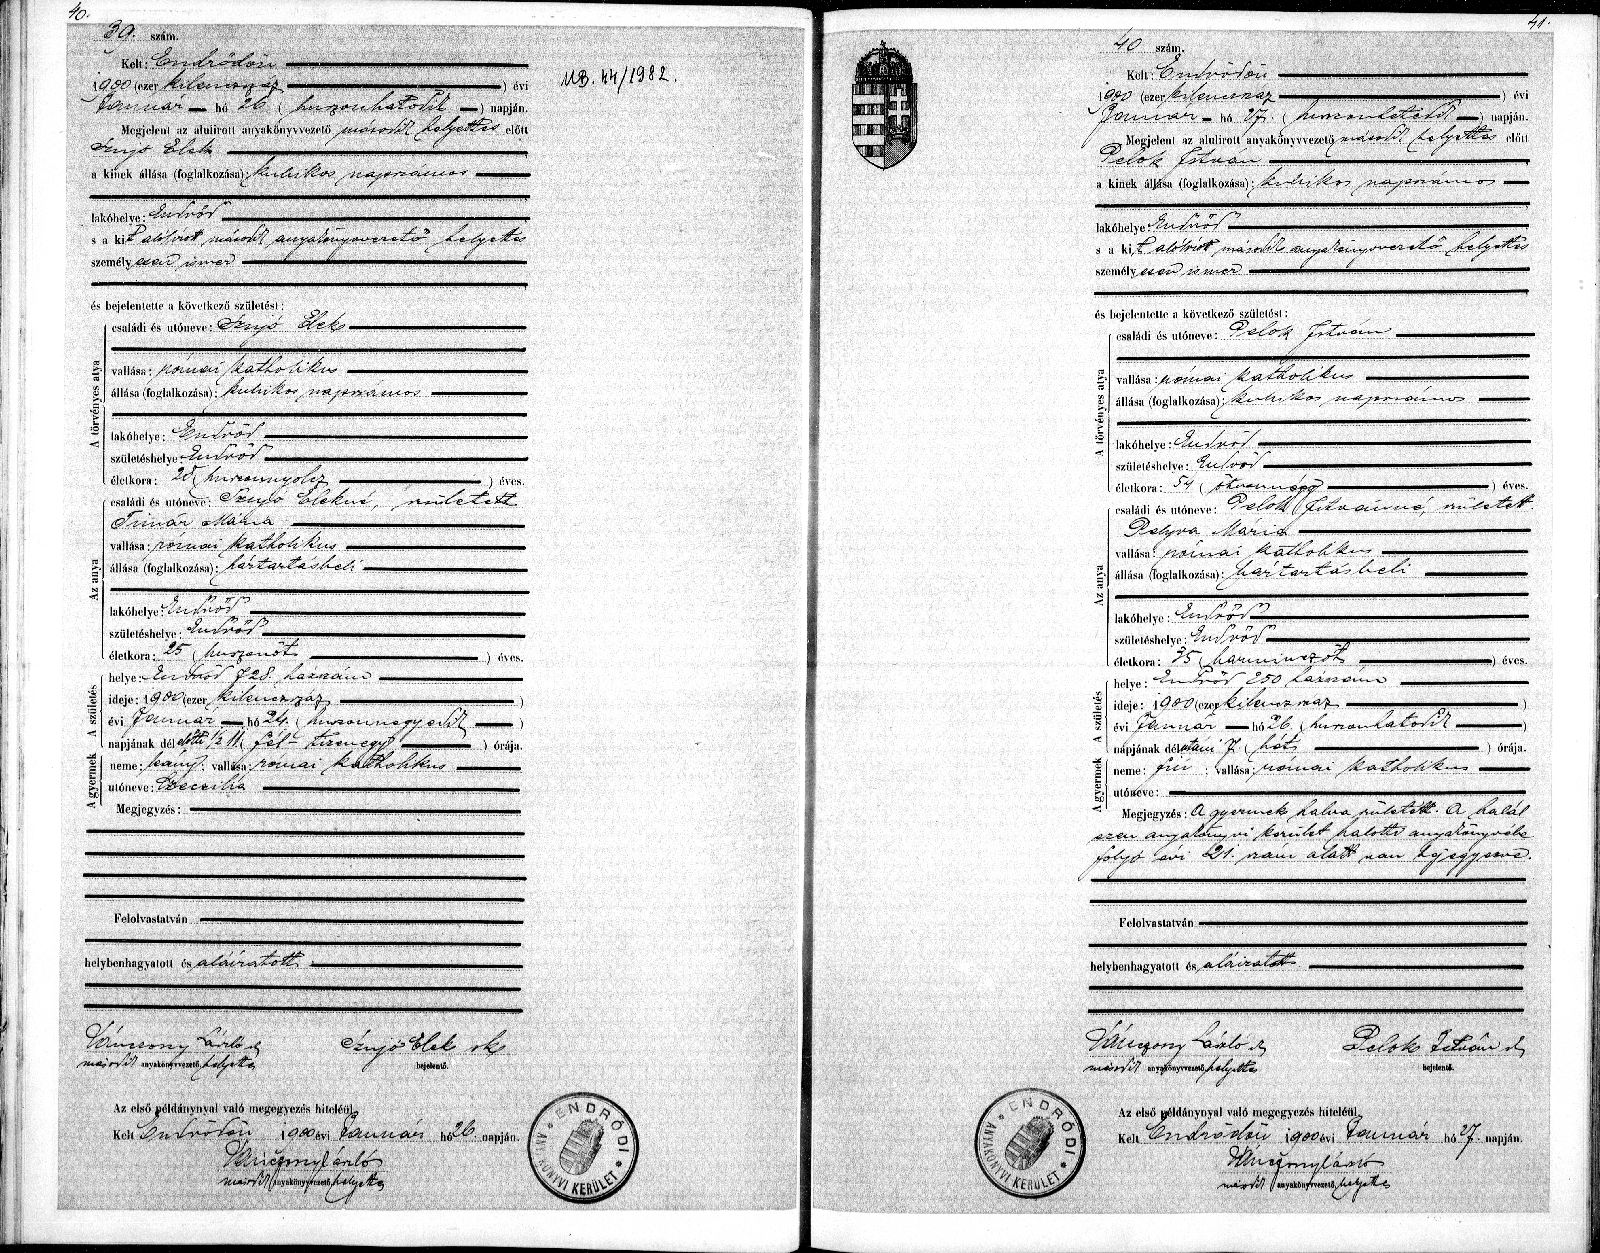 40.
39. szám.
Kelt: Endrődön
1900 (ezer kilenczszáz) évi
Január hó 26. (huszonhatodik) napján.
Megjelent az alulirott anyakönyvvezető második helyettes előtt
Sznyó Elek
a kinek állása (foglalkozása): kubikos napszámos
lakóhelye: Endrőd
s a kit alólirott második anyakönyvvezető helyettes
személyesen ismer
és bejelentette a következő születést:
A törvényes atya
családi és utóneve: Sznyó Elek
vallása: római katholikus
állása (foglalkozása): kubikos napszámos
lakóhelye: Endrőd
születéshelye: Endrőd
életkora: 28 (huszonnyolcz) éves.
Az anya
családi és utóneve: Sznyó Elekné, született
Timár Mária
vallása: római katholikus
állása (foglalkozása): háztartásbeli
lakóhelye: Endrőd
születéshelye: Endrőd
életkora: 25 (huszonöt) éves.
A születés
helye: Endrőd 728 házszám
ideje: 1900 (ezer kilenczszáz)
évi Január hó 24. (huszonnegyedik)
napjának délelőtti 1/2 11. (fél-tizenegy) órája.
A gyermek
neme: leány; vallása: római katholikus
utóneve: Czeczilia
Megjegyzés:
Felolvastatván
helybenhagyatott és aláiratott
László
Sznyó Elek sk
második anyakönyvvezető helyettes
bejelentő.
Az első példánynyal való megegyezés hiteléül
Kelt Endrődön 1900 évi Január hó 26. napján.
László
második anyakönyvvezető helyettes
ENDRŐDI ANYAKÖNYVI KERÜLET
44/1982.
41.
40 szám.
Kelt: Endrődön
1900 (ezer kilenczszáz) évi
Január hó 27. (huszonhetedik) napján.
Megjelent az alulirott anyakönyvvezető második helyettes előtt
Pelok István
a kinek állása (foglalkozása): kubikos napszámos
lakóhelye: Endrőd
s a kit alólirott második anyakönyvvezető helyettes
személyesen ismer
és bejelentette a következő születést:
A törvényes atya
családi és utóneve: Pelok István
vallása: római katholikus
állása (foglalkozása): kubikos napszámos
lakóhelye: Endrőd
születéshelye: Endrőd
életkora: 54 (ötvennégy) éves.
Az anya
családi és utóneve: Pelok Istvánné, született
Pelyva Mária
vallása: római katholikus
állása (foglalkozása): háztartásbeli
lakóhelye: Endrőd
születéshelye: Endrőd
életkora: 35 (harminczöt) éves.
A születés
helye: Endrőd 250 házszám
ideje: 1900 (ezer kilenczszáz)
évi Január hó 26. (huszonhatodik)
napjának délutáni 7. (hét) órája.
A gyermek
neme: fiú; vallása: római katholikus
utóneve:
Megjegyzés: A gyermek halva született. A halál
ezen anyakönyvi kerület halotti anyakönyvébe
folyó évi 21. szám alatt van bejegyezve.
Felolvastatván
helybenhagyatott és aláiratott
László
Pelok István
második anyakönyvvezető helyettes
bejelentő.
Az első példánynyal való megegyezés hiteléül
Kelt Endrődön 1900 évi Január hó 27. napján.
László
második anyakönyvvezető helyettes
ENDRŐDI ANYAKÖNYVI KERÜLET